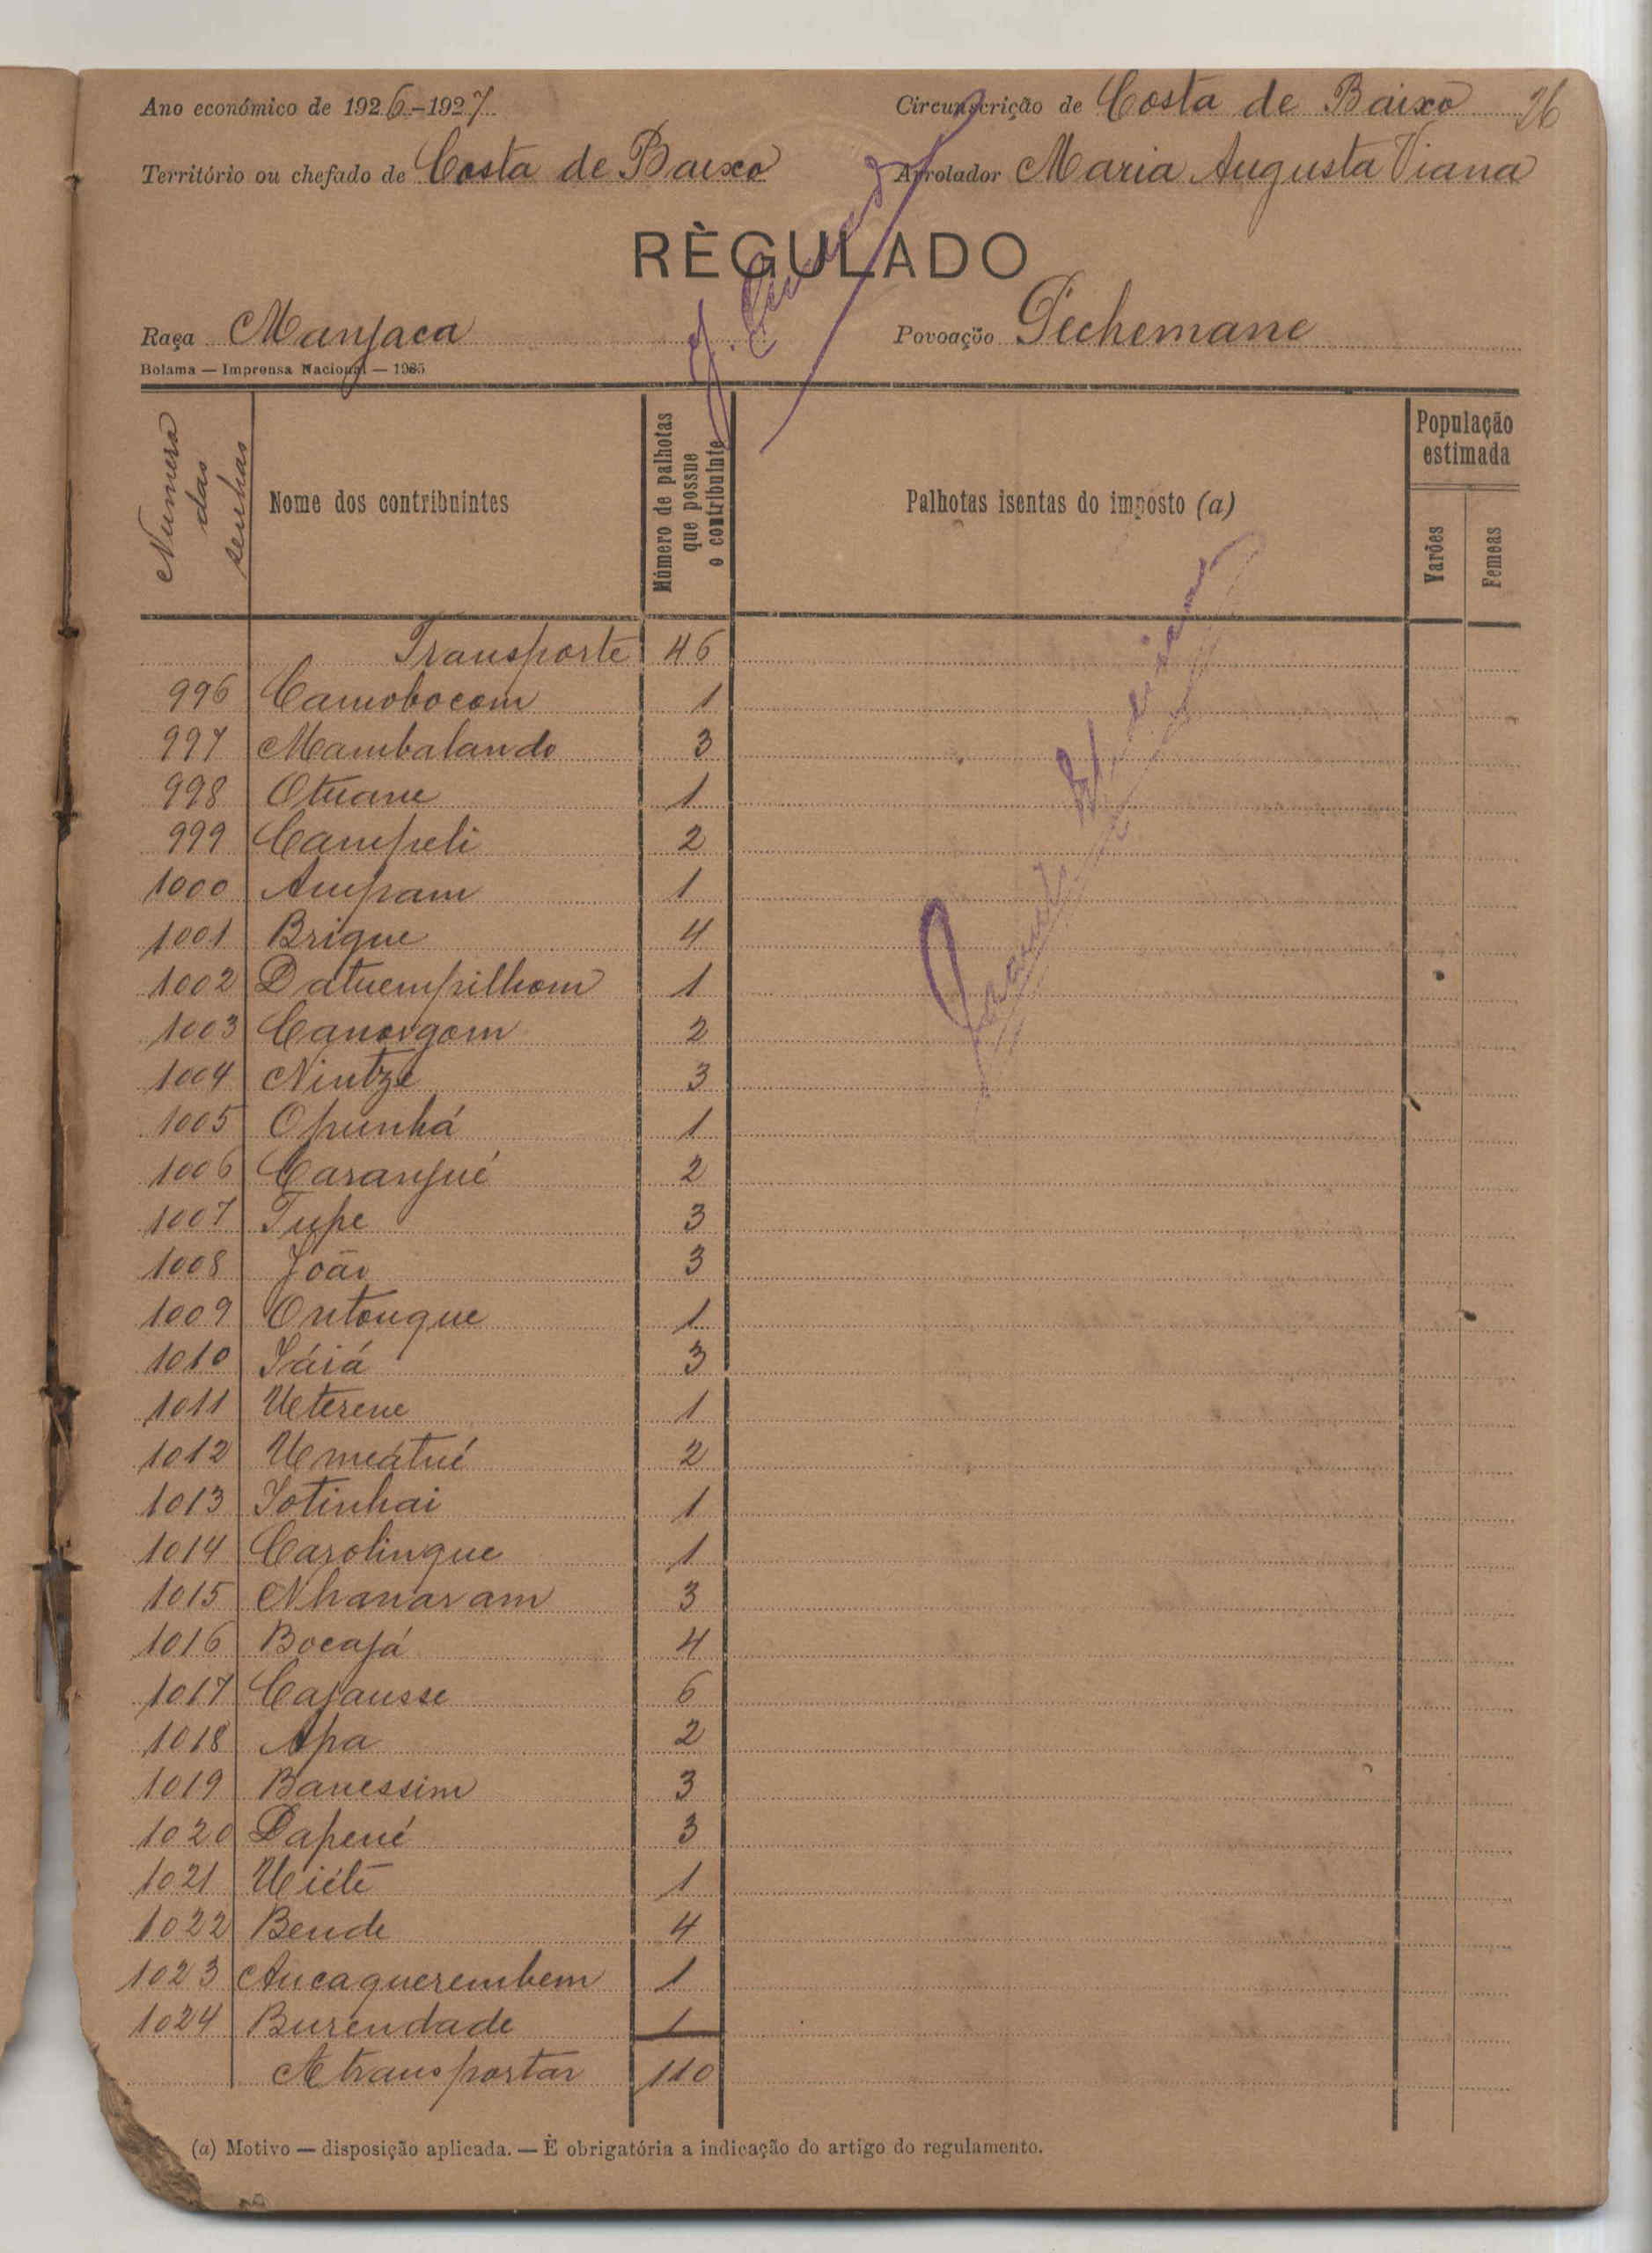 Ano económico de 1926-1927 Circunscrição de Costa de Baixo 26
Território ou chefado de Costa de Baixo Arrolador Maria Augusta Viana
RÈGULADO
Raça Manjaca Povoação Pechemane
Bolama — Imprensa Nacional — 1925
Numero das senhas Nome dos contribuintes Número de palhotas que possue o contribuinte Palhotas isentas do imposto (a) População estimada Varões Femeas
Transporte 46
996 Camobocom 1
997 Mambalando 3
998 Otuane 1
999 Campeli 2
1000 Ampam 1
1001 Brique 4
1002 Datuempilhom 1
1003 Canorgom 2
1004 Nintzé 3
1005 Opunhá 1
1006 Caranjué 2
1007 Tupe 3
1008 João 3
1009 Ontongue 1
1010 Sáiá 3
1011 Ueterene 1
1012 Umeatué 2
1013 Sotinhai 1
1014 Carolinque 1
1015 Nhanaram 3
1016 Bocajá 4
1017 Cajausse 6
1018 Apa 2
1019 Banessim 3
1020 Dapené 3
1021 Uiéte 1
1022 Bende 4
1023 Aucaquerembem 1
1024 Burendade 1
A transportar 110
(a) Motivo — disposição aplicada. — È obrigatória a indicação do artigo do regulamento.